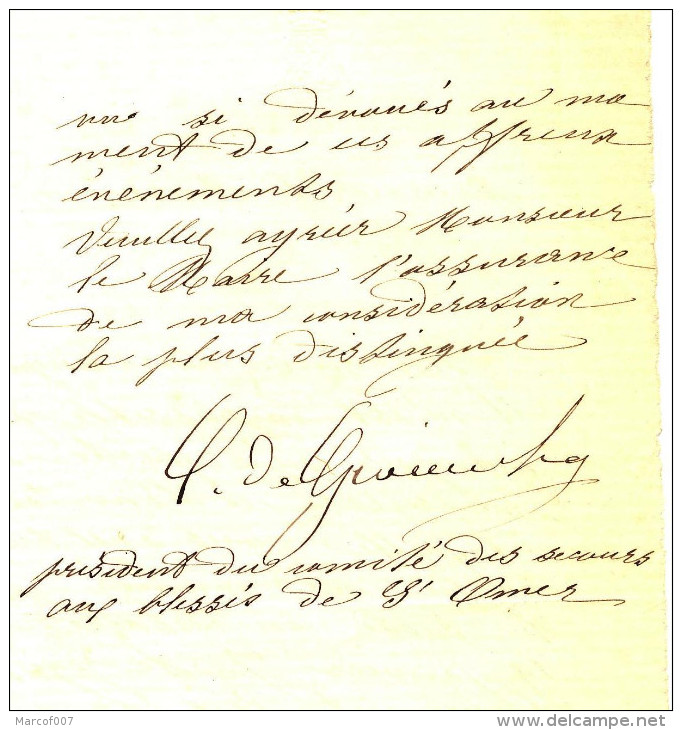 si dévoués au mo
ment de ces affreux
événements
Veuillez agréer Monsieur
le Maire l'assurance
de ma considération
la plus distinguée
président du comité des secours
aux blessés de St Omer
Marcof007
www.delcampe.net